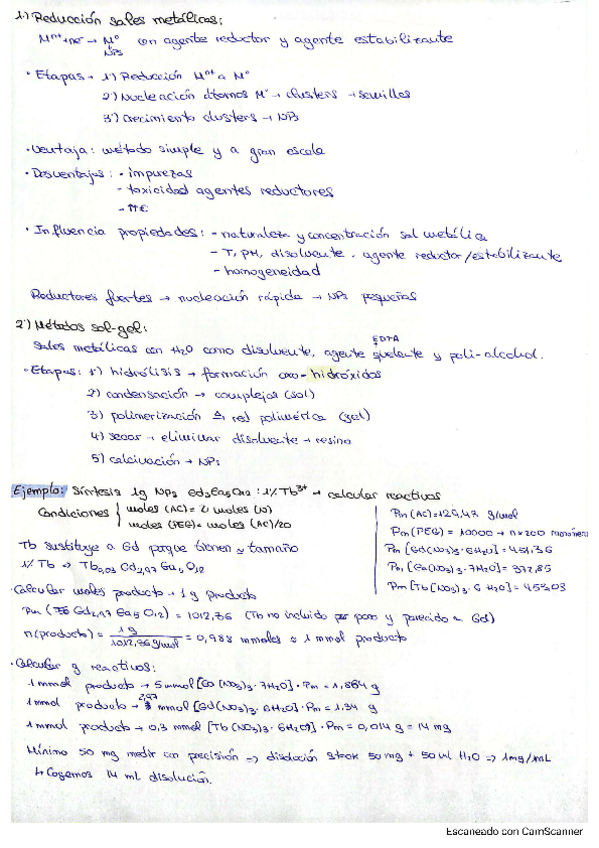 1.) Reducción sales metálicas:
Mn+ + ne- → M⁰ con agente reductor y agente estabilizante
NPs
· Etapas → 1) Reducción Mn+ a M⁰
2) Nucleación átomos M⁰ → clusters → semillas
3) Crecimiento clusters → NPs
· Ventaja: método simple y a gran escala
· Desventajas: - impurezas
- toxicidad agentes reductores
- ↑↑€
· Influencia propiedades: - naturaleza y concentración sal metálica
- T, pH, disolvente, agente reductor/estabilizante
- homogeneidad
Reductores fuertes → nucleación rápida → NPs pequeñas
2) Métodos sol-gel:
EDTA
Sales metálicas con H2O como disolvente, agente quelante y poli-alcohol.
· Etapas: 1) hidrólisis → formación oxo-hidróxidos
2) condensación → complejos (sol)
3) polimerización red polimérica (gel)
4) secar → eliminar disolvente → resina
5) calcinación → NPs
Ejemplo: Síntesis 1g NPs Gd3Ga5O12 : 1% Tb3+ → calcular reactivos
Condiciones moles (AC) = moles
moles (PEG) = moles (AC)/20
Pm (AC) = 129,47 g/mol
Pm (PEG) = 10000 → n×200
Pm [Gd(NO3)3·6H2O] = 451,36
Pm [Ga(NO3)3·7H2O] = 372,85
Pm [Tb(NO3)3·6H2O] = 453,03
Tb sustituye a Gd porque tienen ≈ tamaño
1% Tb → Tb0,03 Gd2,97 Ga5 O12
· Calcular moles producto → 1 g producto
Pm (Gd2,97 Ga5 O12) = 1012,36 (Tb no incluido por poco y parecido a Gd)
n (producto) = 1g / 1012,36 g/mol = 0,988 mmoles ≈ 1 mmol producto
· Calcular g reactivos:
1 mmol producto → 5 mmol [Ga(NO3)3·7H2O] · Pm = 1,864 g
1 mmol producto → 2,97 mmol [Gd(NO3)3·6H2O] · Pm = 1,34 g
1 mmol producto → 0,3 mmol [Tb(NO3)3·6H2O] · Pm = 0,014 g = 14 mg
Mínimo 50 mg medir con precisión => disolución stock 50 mg + 50 ml H2O => 1mg/mL
↳ Cogemos 14 mL disolución.
Escaneado con CamScanner